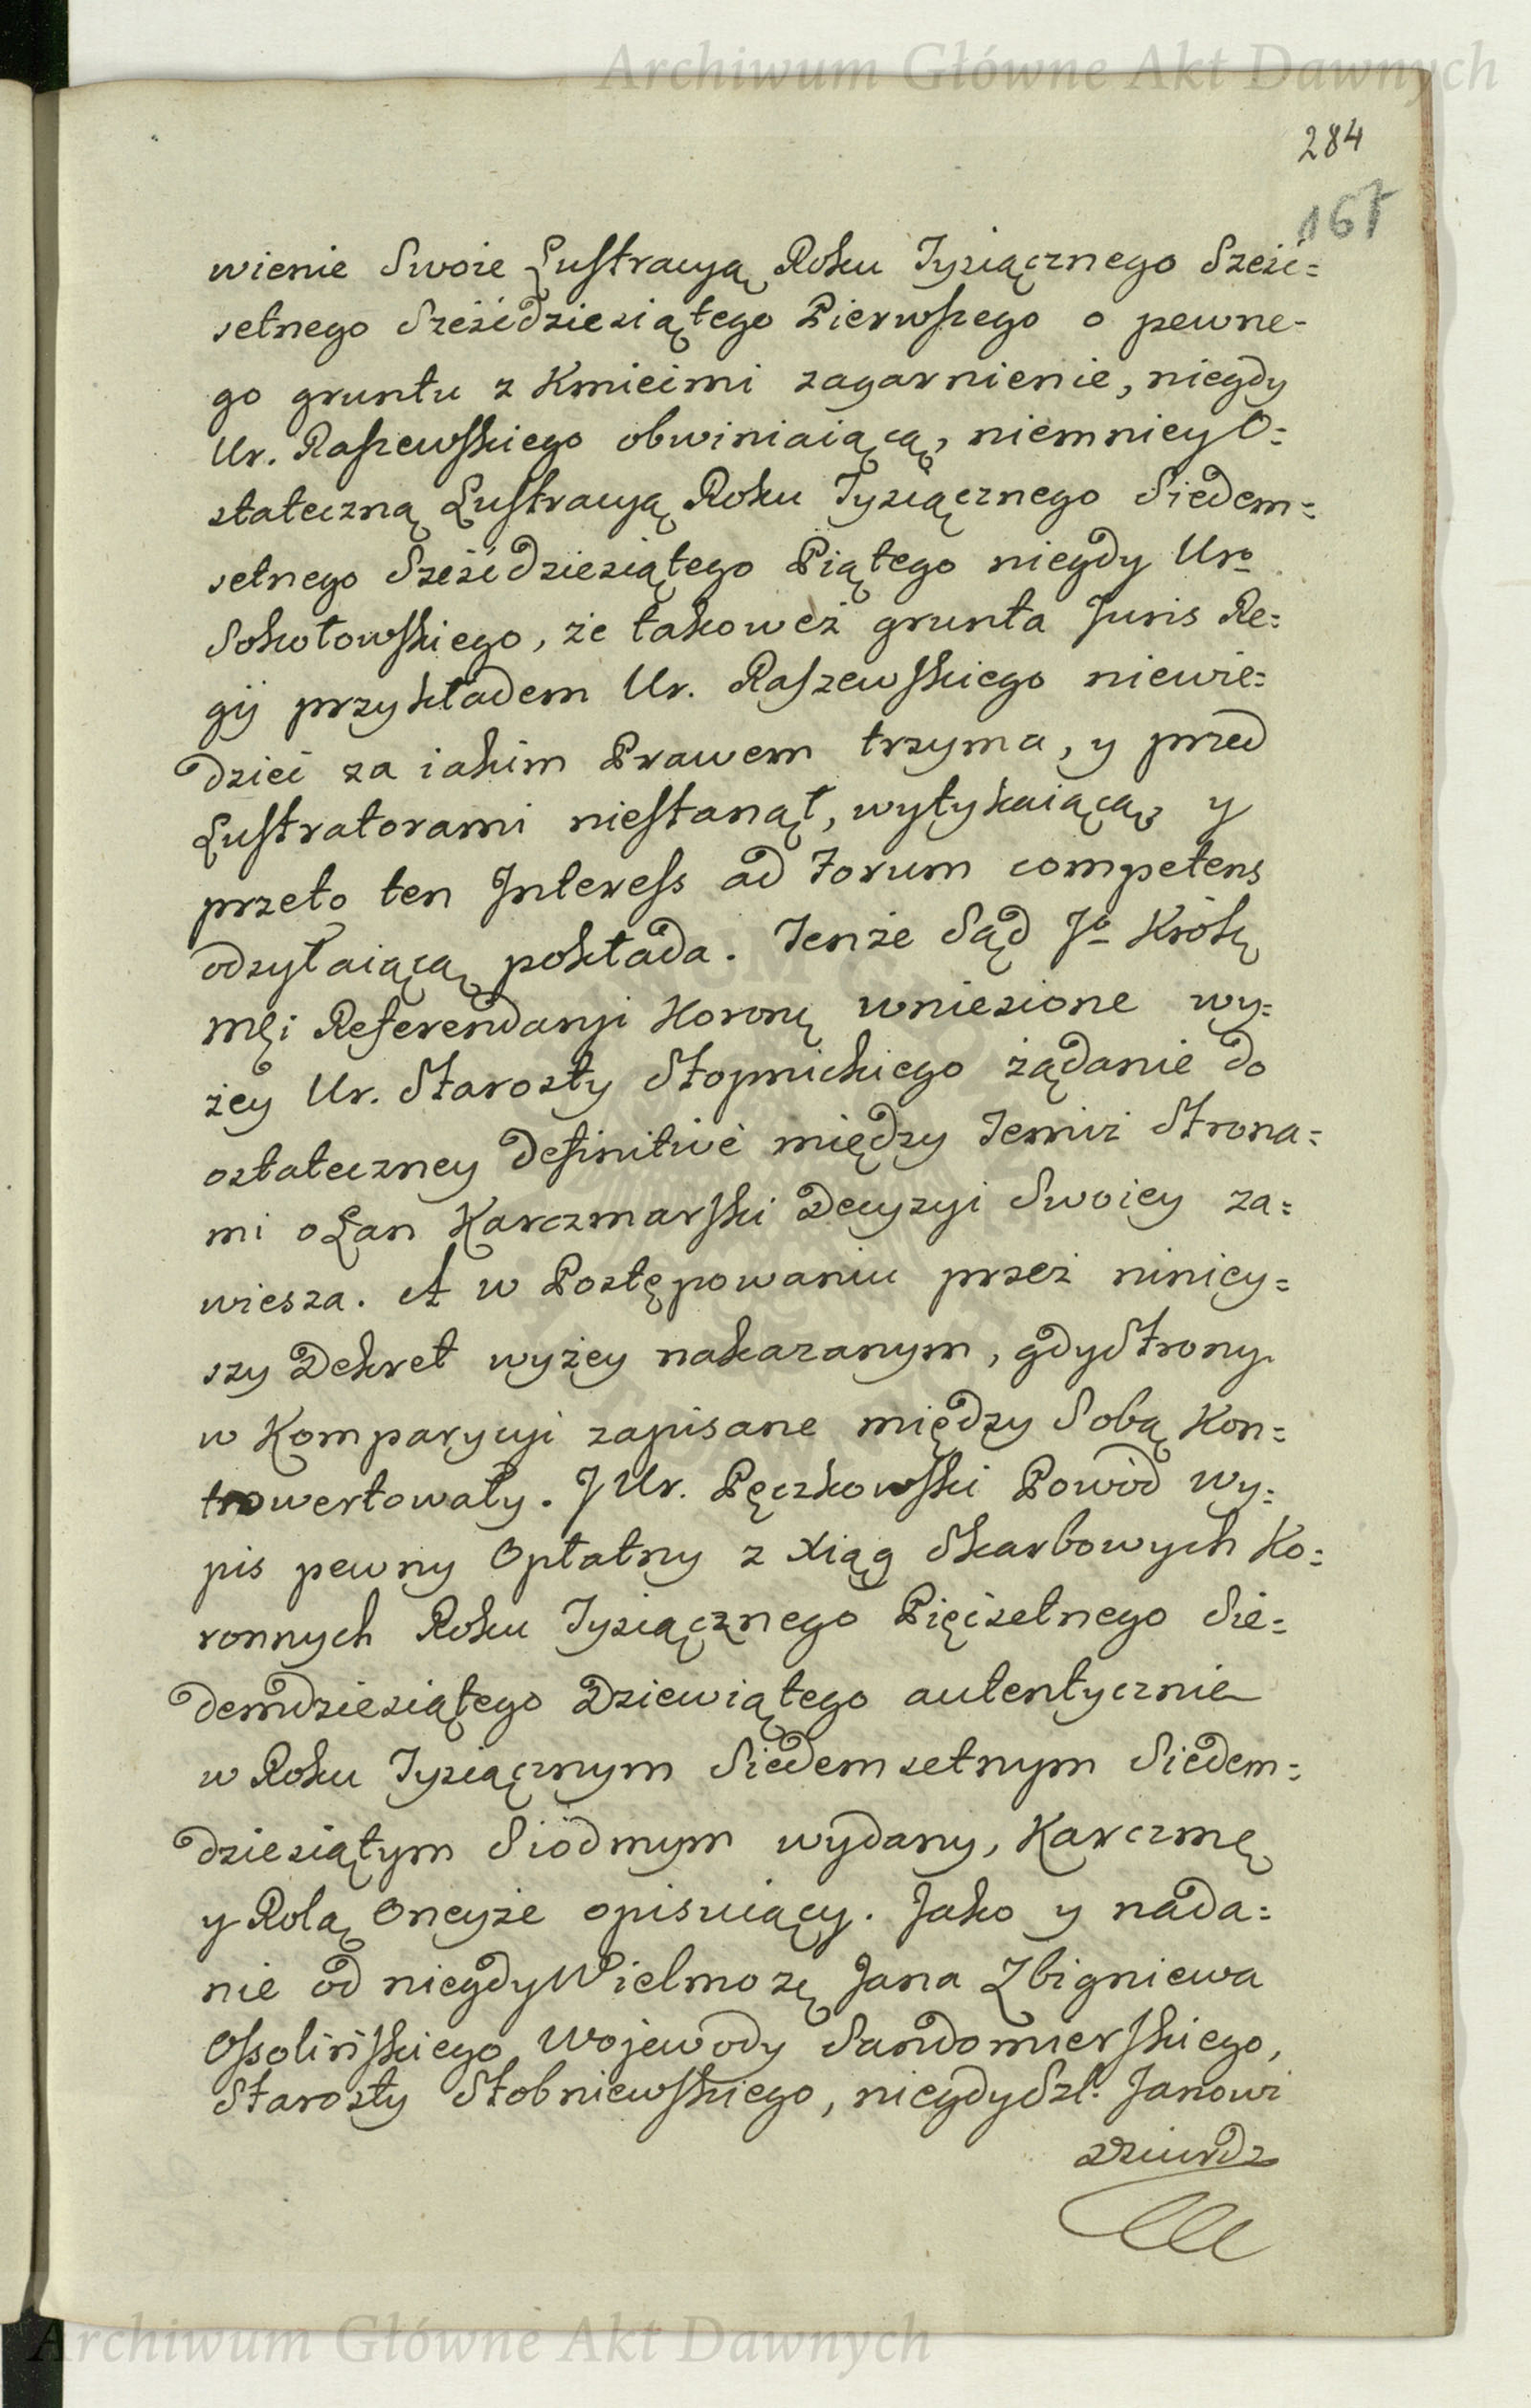 Archiwum Główne Akt Dawnych
284
167
wienie Swoie Lustracyą Roku Tysiącznego Sześć=
setnego Sześćdziesiątego Pierwszego o pewne-
go gruntu z Kmiećmi zagarnienie, niegdy
Ur. Raszewskiego obwiniaiącą, niemniey O=
stateczną Lustracyą Roku Tysiącznego Siedem=
setnego Sześćdziesiątego Piątego niegdy Uro
Sokołowskiego, że takoweż grunta Juris Re=
gij przykładem Ur. Raszewskiego niewie=
dzieć za iakim Prawem trzyma, y przed
Lustratorami niestanął, wytykaiącą, y
przeto ten Interess ad Forum competens
odsyłaiącą pokłada. Tenże Sąd Jo Królę
Mći Referendaryi Koronę wniesione wy=
żey Ur. Starosty Stopnickiego żądanie do
ostateczney definitivè między Temiż Strona=
mi o Łan Karczmarski Decyzyi Swoiey za=
wiesza. A w Postępowaniu przez niniey=
szy Dekret wyżey nakazanym, gdy Strony
w Komparycyi zapisane między Sobą Kon=
trowertowały. J Ur. Pęczkowski Powód Wy=
pis pewny Opłatny z Xiąg Skarbowych Ko=
ronnych Roku Tysiącznego Pięćsetnego Sie=
demdziesiątego Dziewiątego autentycznie
w Roku Tysiącznym Siedemsetnym Siedem=
dziesiątym Siódmym wydany, Karczmę
y Rolą Oneyże opisuiący. Jako y nada=
nie od niegdy Wielmożę Jana Zbigniewa
Ossolińskiego Wojewody Sandomierskiego,
Starosty Stobniewskiego, niegdy Szl. Janowi
Archiwum Główne Akt Dawnych